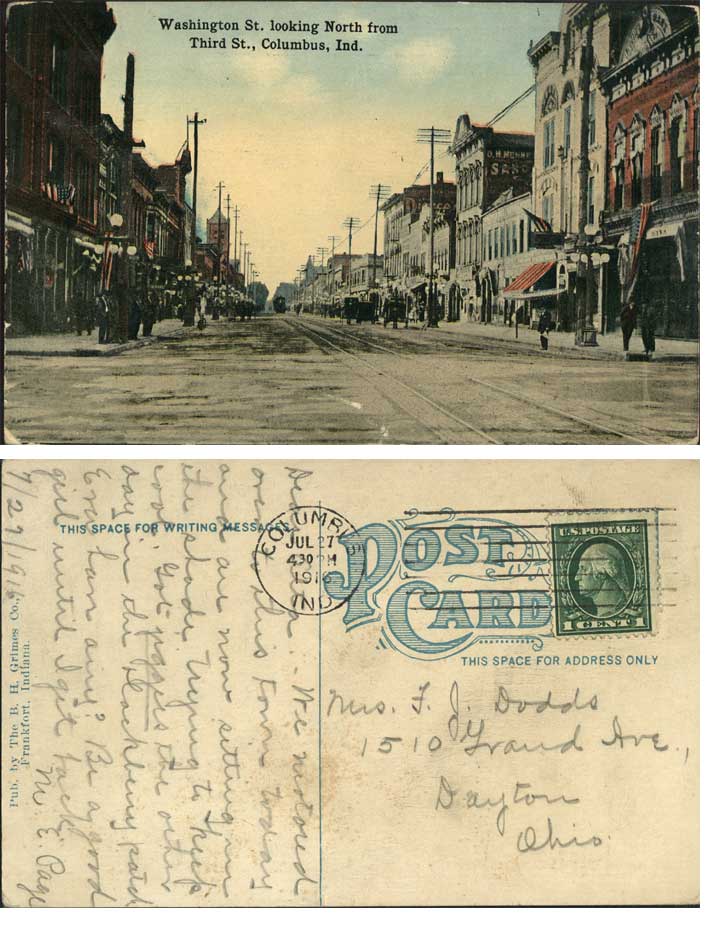 Washington St. looking North from
Third St., Columbus, Ind.
SAS
THIS SPACE FOR WRITING MESSAGES
COLUMBUS
JUL 27
430 PM
1916
IND.
POST
CARD
U.S. POSTAGE
1 CENT 1
THIS SPACE FOR ADDRESS ONLY
Mrs. F. J. Dodds
1510 Grand Ave.,
Dayton
Ohio.
Dear :- We motored
over to this town today
and are now sitting in
the shade trying to keep
cool. Got the other
day in the blackberry patch
Ever any? Be a good
girl until I get back.
M. E. Page
7/27/1916
Pub. by The B. H. Grimes Co.,
Frankfort, Indiana.